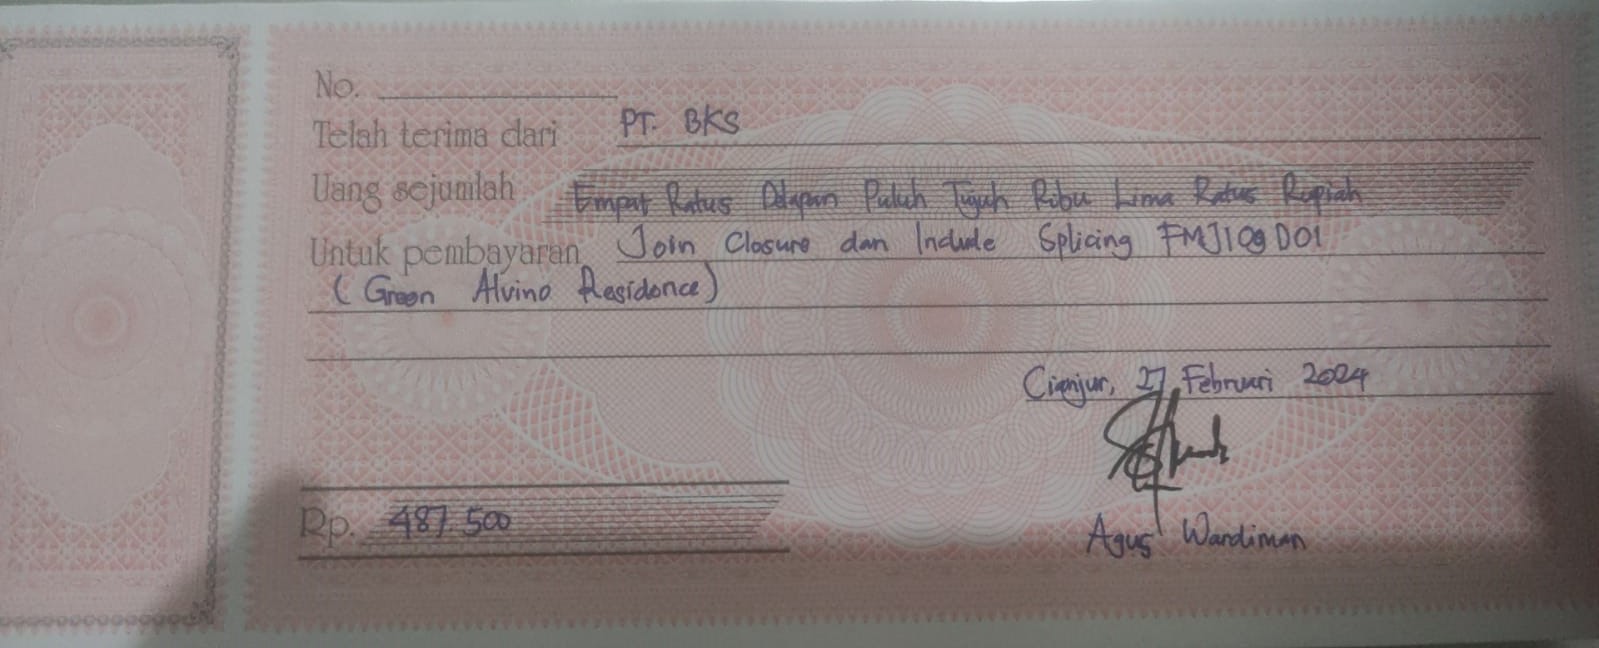 No.
Telah terima dari PT. BKS
Uang sejumlah Empat Ratus Delapan Puluh Tujuh Ribu Lima Ratus Rupiah
Untuk pembayaran Join Closure dan Include Splicing FMJ109D01
(Green Alvino Residence)
Cianjur, 27 Februari 2024
Rp. 487.500
Agus Wardiman